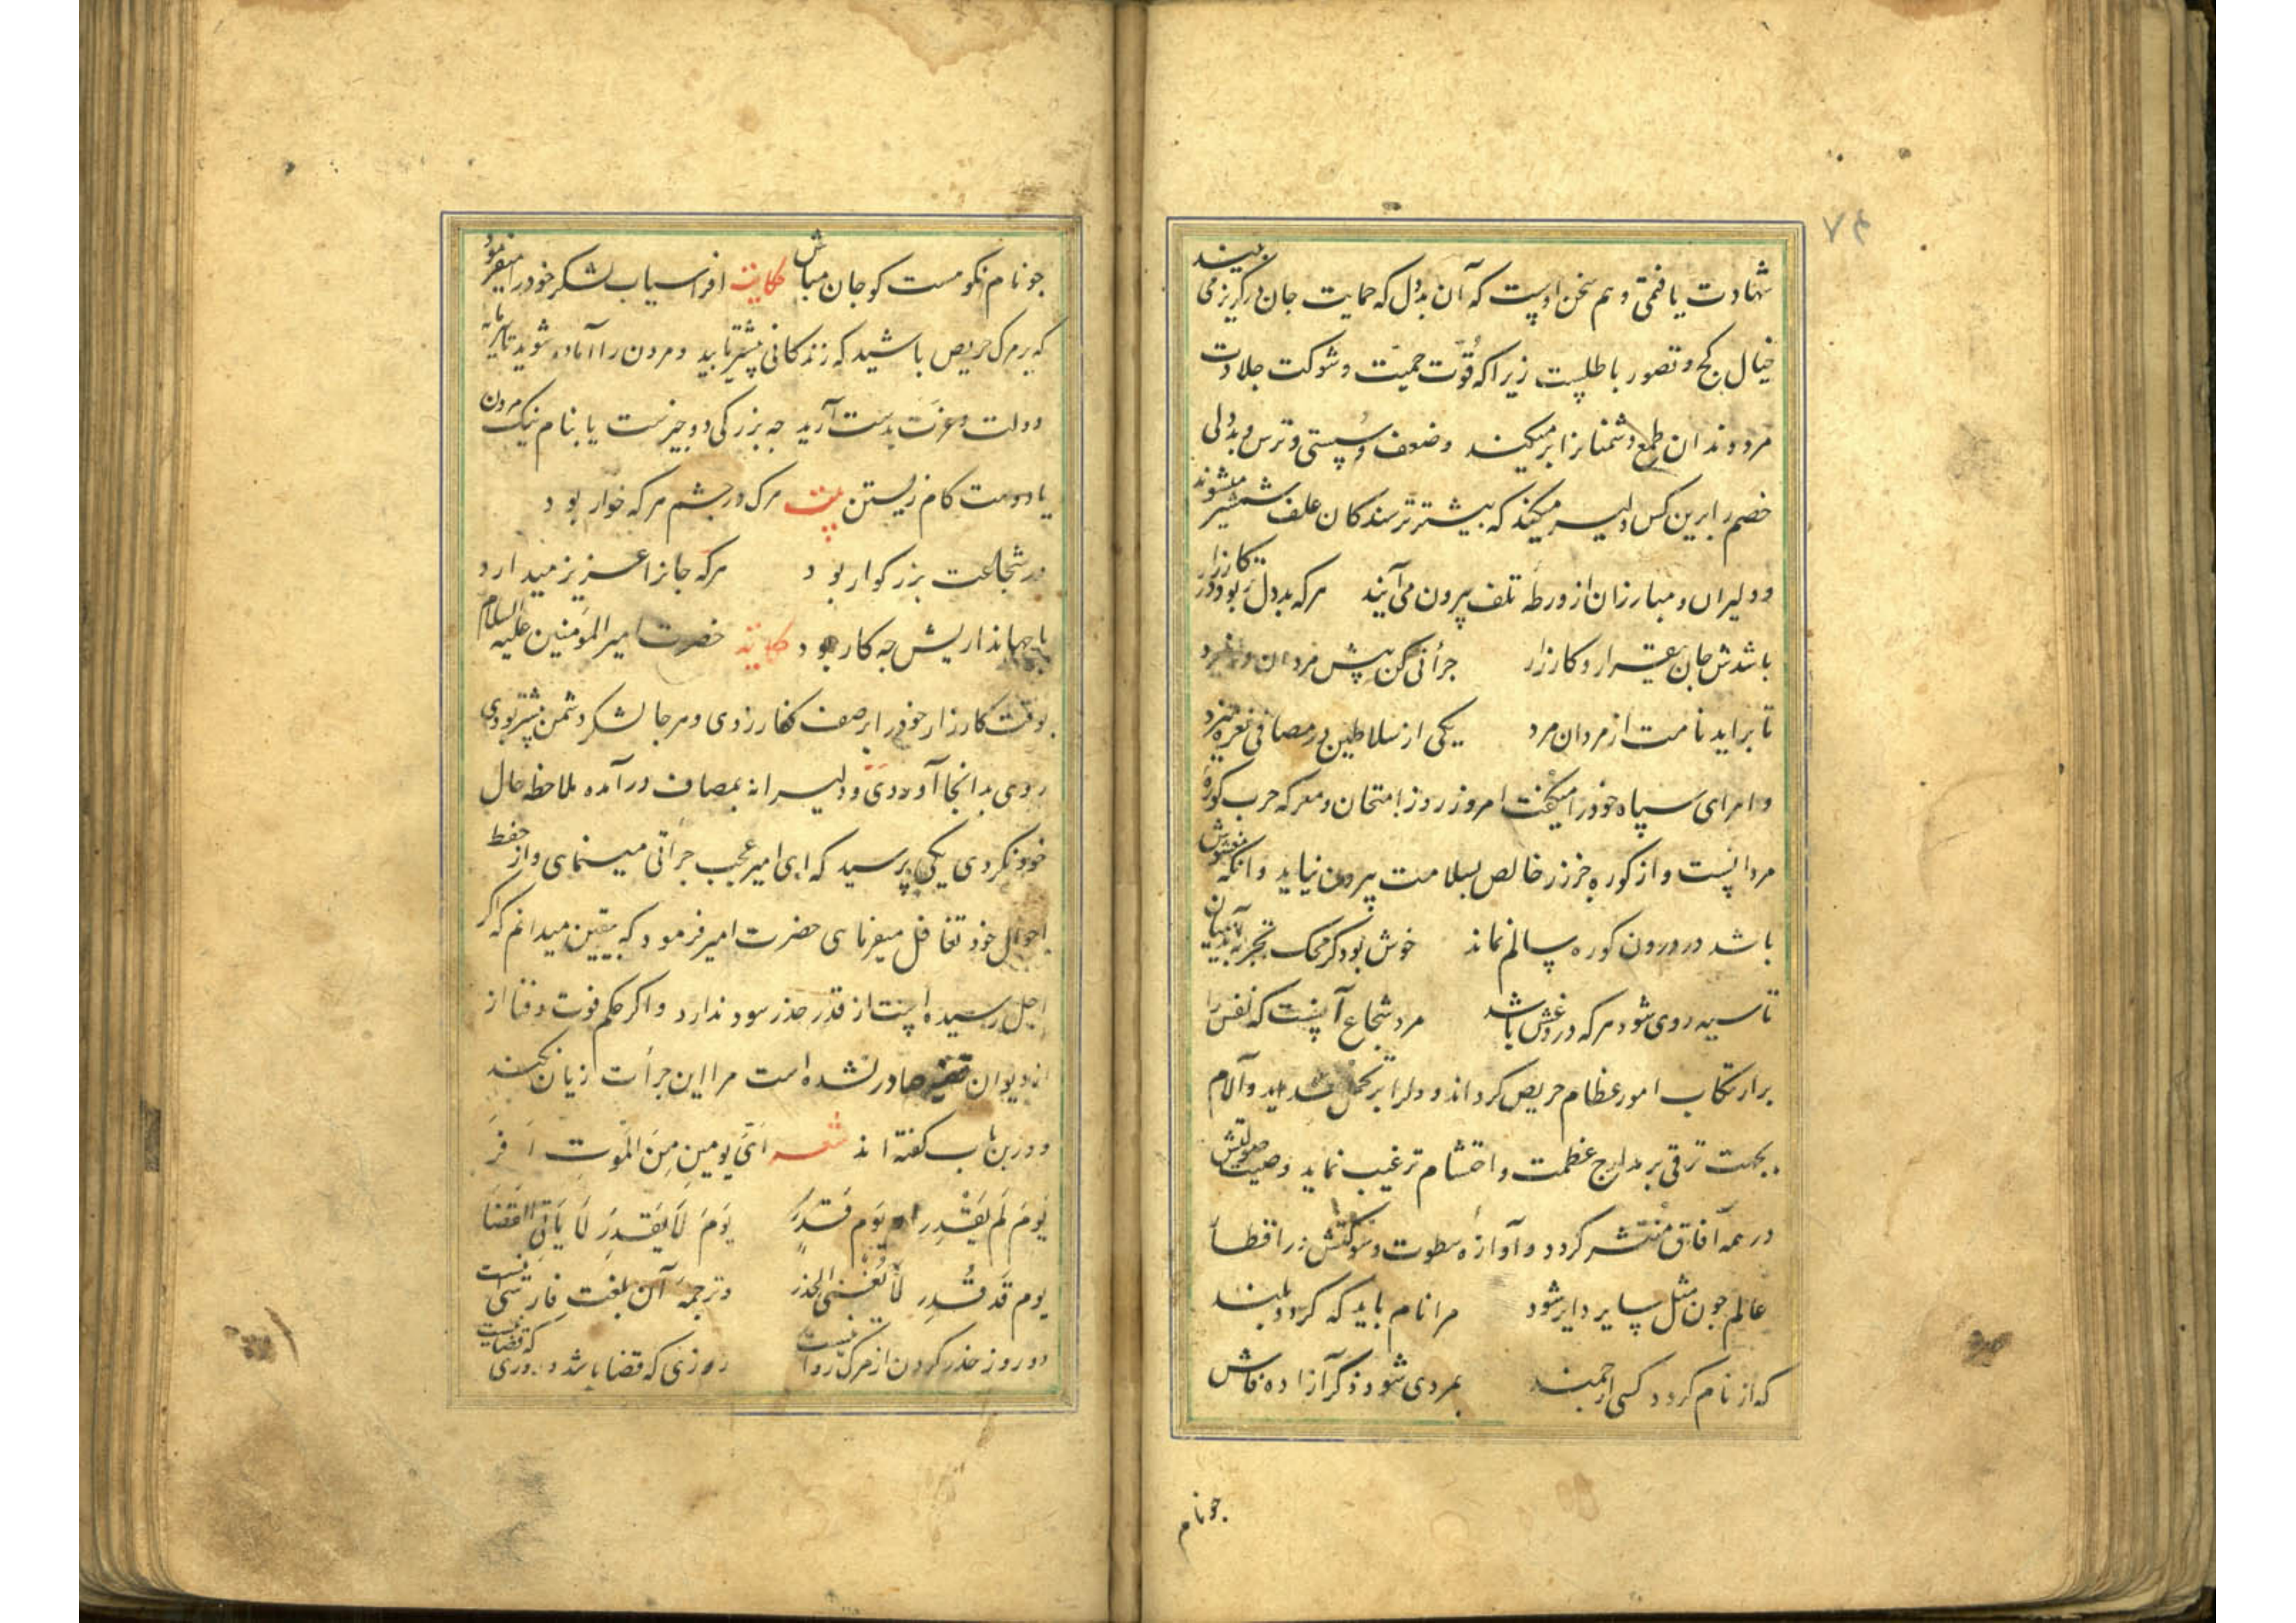 ۷۴
شهادت یافتمی و هم سخن اوست که آن بددل که حمایت جان در گریز می بیند
خیال کج و تصور باطلست زیرا که قُوّت حمیّت و شوکت جلادت
مرد دندان طمع دشمنانرا بر میکند و ضعف و سستی و ترس و بددلی
خصم را برین کس دلیر میکند که بیشتر ترسندکان علف شمشیر میشوند
و دلیران و مبارزان از ورطه تلف بیرون می آیند مرکه بددل بود در کارزار
باشدش جان بیقرار و کارزار جرأتی کن پیش مردان در نبرد
تا براید نامت از مردان مرد یکی از سلاطین در مصافی نعره میزد
و امرای سپاه خود را میکفت امروز روز امتحان و معرکه حرب کوره
مردانست و از کوره جز زر خالص بسلامت بیرون نیاید و آنکه مغشوش
باشد در درون کوره سالم نماند خوش بود کر محک تجربه آید بمیان
تا سیه روی شود مرکه دروغش باشد مرد شجاع آنست که نفس را
بر ارتکاب امور عظام حریص کرداند و دلرا بر تحمل شداید و آلام
بجهت ترقی بر مدارج عظمت و احتشام ترغیب نماید و صیت صولتش
در همه آفاق منتشر کردد و آوازه سطوت و شوکتش در اقطار
عالم جون مثل سایر دایر شود مرا نام باید که کردد بلند
که از نام کردد کسی ارجمند بمردی شود ذکر آزاده فاش
جو نام
جو نام نکو هست کو جان مباش حکایت افراسیاب لشکر خود را میفرمود
که بر مرک حریص باشید که زندکانی بیشتر یابید و مردن را آماده شوید تا
دولت و عزت بدست آرید جه بزرکی دو جیزست یا بنام نیک مردن
یا دوست کام زیستن بیت مرک در جشم مرکه خوار بود
در شجاعت بزرکوار بود مرکه جانرا عزیز میدارد
با جهانداریش جه کار بود حکایت حضرت امیر المؤمنین علیه السلام
بوقت کارزار خود را بر صف کفار زدی و مرجا لشکر دشمن بیشتر بودی
روی بدانجا آوردی و دلیرانه بمصاف در آمده ملاحظه حال
خود نکردی یکی پرسید که ای امیر عجب جرأتی مینمای و از حفظ
احوال خود تغافل میفرمای حضرت امیر فرمود که بیقین میدانم که اکر
اجل رسیده است از قدر حذر سود ندارد و اکر حکم فوت و فنا از
از دیوان قضا صادر نشده است مرا این جرأت زیان نکند
و درین باب کفته اند شعر اَیّ یومین مِنَ المَوتِ اَفرّ
یَومَ لَم یَقْدِر ام یَوم قَدِر یَومَ لَا یَقدِرَ لَا یَأتی القضا
یوم قَد قُدِر لَا یُغنی الحذر و ترجمه آن بلغت فارسی اینست
دو روز حذر کردن از مرک روا نیست روزی که قضا باشد و روزی که قضا نیست